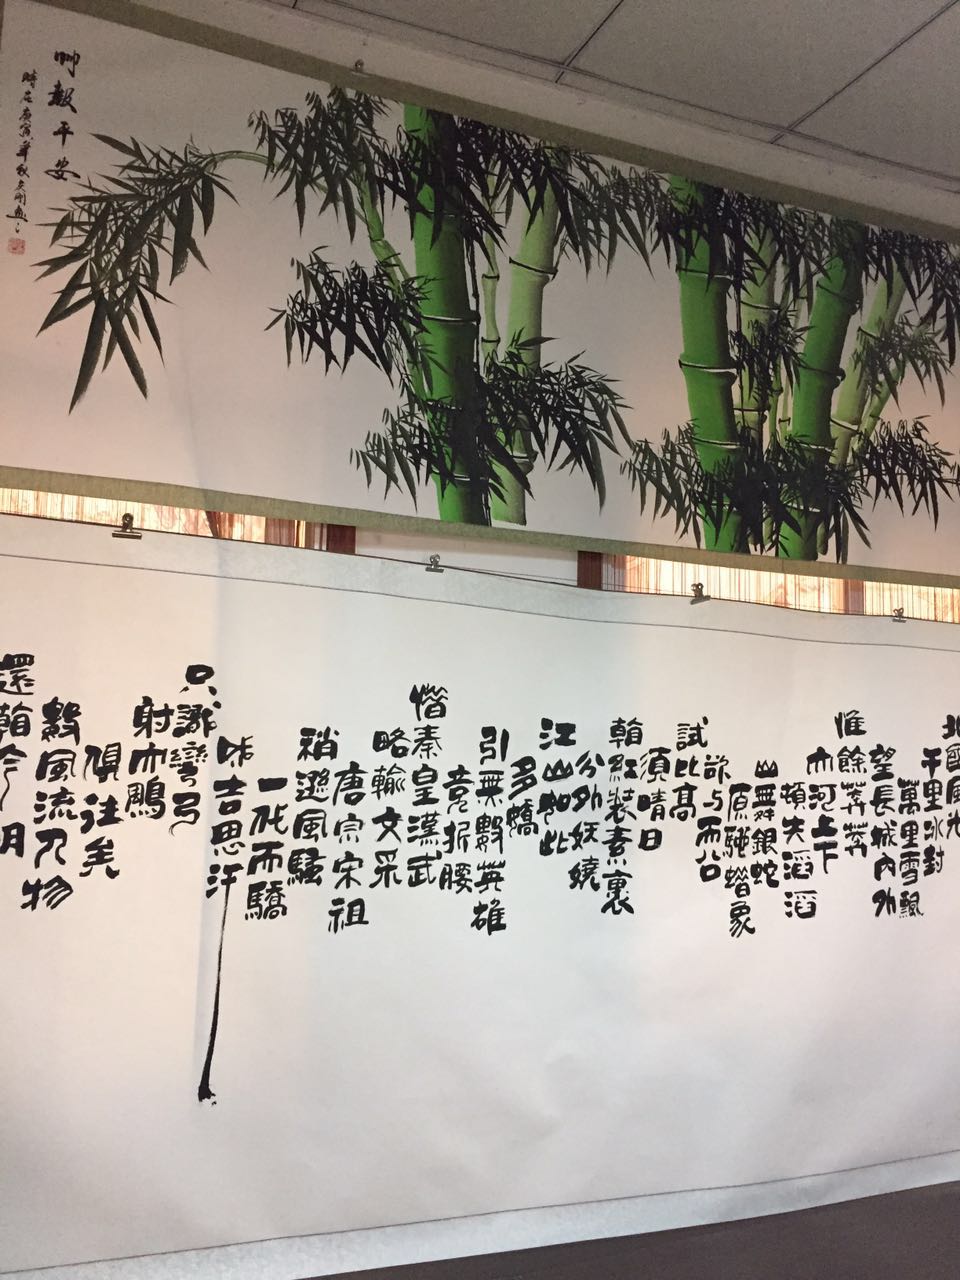 竹報平安
時在庚寅年秋
北國風光
千里冰封
萬里雪飄
望長城內外
惟餘莽莽
大河上下
頓失滔滔
山舞銀蛇
原馳蠟象
欲与天公
試比高
須晴日
看紅裝素裹
分外妖嬈
江山如此
多嬌
引無數英雄
竞折腰
惜秦皇漢武
略輸文采
唐宗宋祖
稍遜風騷
一代天驕
成吉思汗
只識彎弓
射大鵰
俱往矣
數風流人物
還看今朝